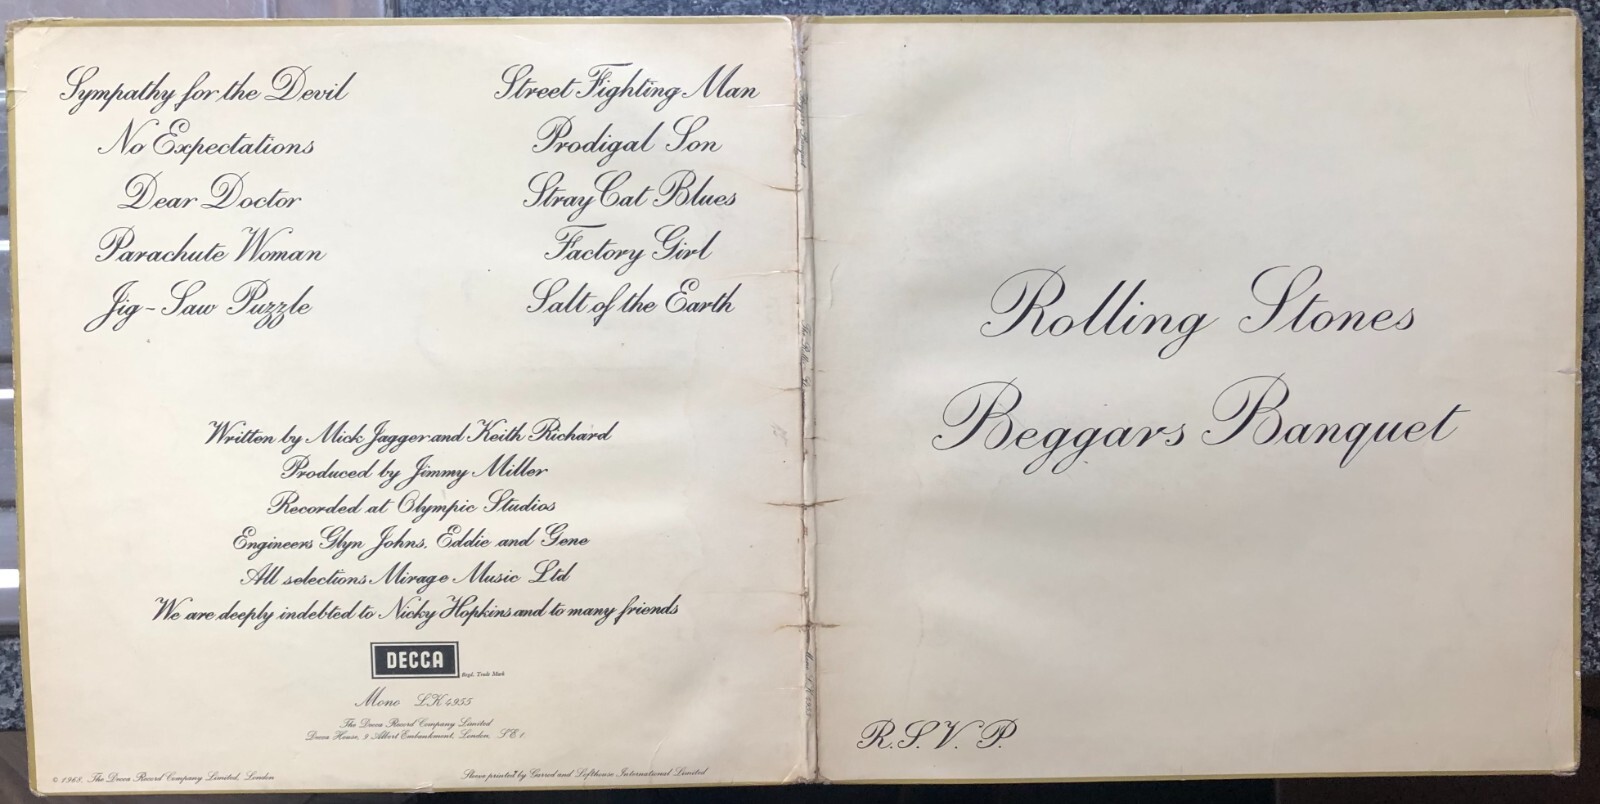 Sympathy for the Devil
No Expectations
Dear Doctor
Parachute Woman
Jig-Saw Puzzle
Street Fighting Man
Prodigal Son
Stray Cat Blues
Factory Girl
Salt of the Earth
Written by Mick Jagger and Keith Richard
Produced by Jimmy Miller
Recorded at Olympic Studios
Engineers Glyn Johns, Eddie and Gene
All selections Mirage Music Ltd
We are deeply indebted to Nicky Hopkins and to many friends
DECCA
Regd. Trade Mark
Mono LK 4955
The Decca Record Company Limited
Decca House, 9 Albert Embankment, London, S.E.1.
© 1968, The Decca Record Company Limited, London
Sleeve printed by Garrod and Lofthouse International Limited
Rolling Stones
Beggars Banquet
R.S.V.P.